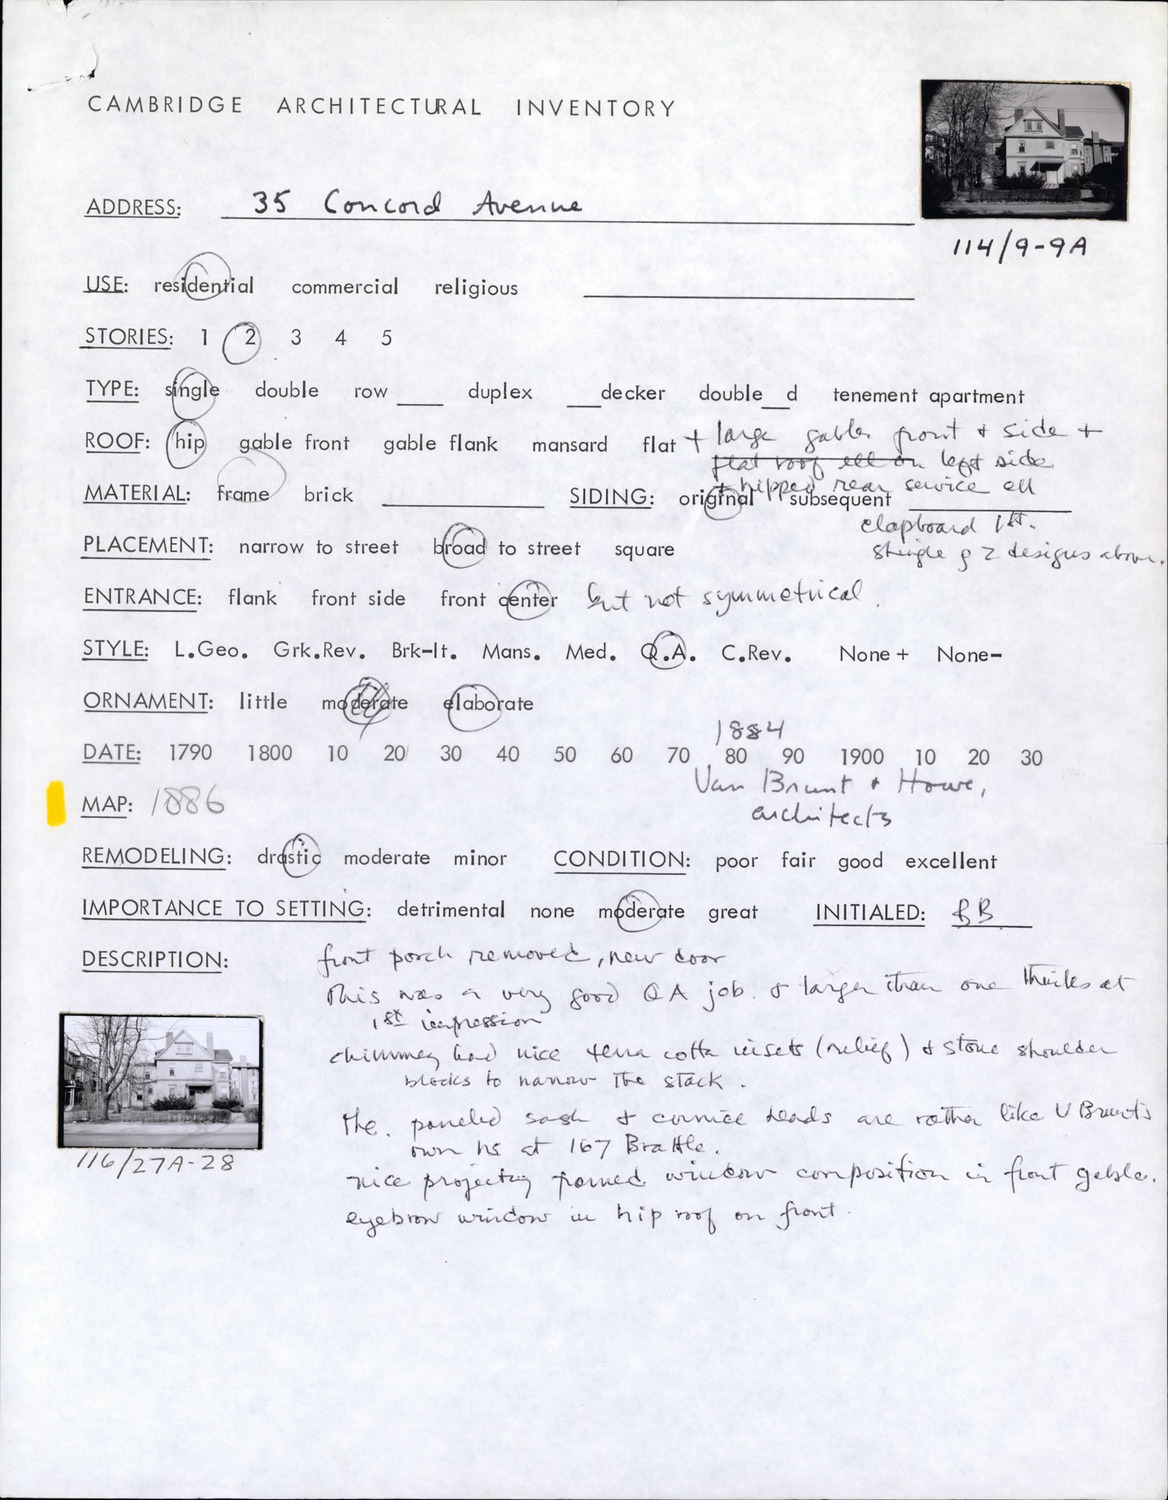 CAMBRIDGE ARCHITECTURAL INVENTORY
ADDRESS: 35 Concord Avenue
114/9-9A
USE: residential commercial religious
STORIES: 1 2 3 4 5
TYPE: single double row ___ duplex ___decker double__d tenement apartment
ROOF: hip gable front gable flank mansard flat + large gables front & side +
flat roof ell on left side
+ hipped rear service ell
MATERIAL: frame brick SIDING: original subsequent
clapboard 1st.
shingle of 2 designs above.
PLACEMENT: narrow to street broad to street square
ENTRANCE: flank front side front center but not symmetrical.
STYLE: L.Geo. Grk.Rev. Brk-It. Mans. Med. Q.A. C.Rev. None+ None-
ORNAMENT: little moderate elaborate
1884
DATE: 1790 1800 10 20 30 40 50 60 70 80 90 1900 10 20 30
Van Brunt & Howe,
architects
MAP: 1886
REMODELING: drastic moderate minor CONDITION: poor fair good excellent
IMPORTANCE TO SETTING: detrimental none moderate great INITIALED: BB
DESCRIPTION: front porch removed, new door
This was a very good QA job & larger than one thinks at
1st impression
chimney had nice terra cotta insets (relief) & stone shoulder
blocks to narrow the stack.
the paneled sash & cornice heads are rather like V Brunt's
own hs at 167 Brattle.
nice projecting window composition in front gable.
eyebrow window in hip roof on front.
116/27A-28